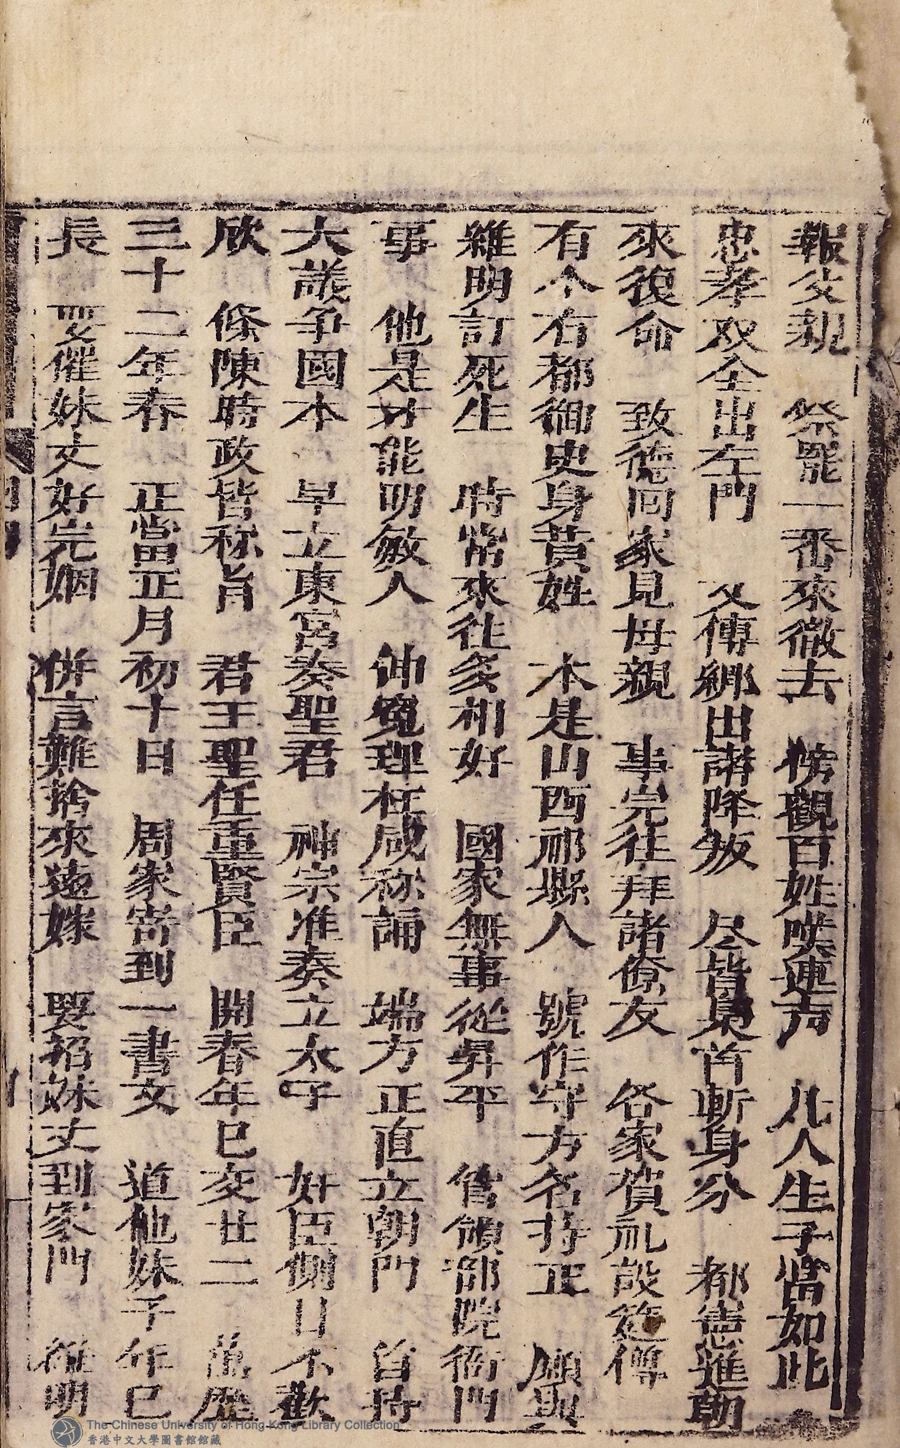 報父親　祭罷一番來徹去　榜觀百姓喚連声　凡人生子當如此
忠孝双全出左門　又傳綁出諸降叛　尽皆梟首斬身分　都憲進朝
來復命　致德回家見母親　事完往拜諸僚友　各家賀礼設筵
有个右都御史身黄姓　本是山西祁縣人　號作守方名持正　願與
維明訂死生　時常來往多相好　國家無事從昇平　管領部院衙門
事　他是才能明敏人　伸寃理枉咸称誦　端方正直立朝門　首持
大議争國本　早立東宮奏聖君　神宗准奏立太子　奸臣側目不歡
欣　條陳時政皆称旨　君王聖任重賢臣　開春年已交廿二　萬歷
三十二年春　正當正月初十日　周家寄到一書文　道他妹子年已
長　要催妹丈好完姻　併言難捨來遠嫁　要招妹丈到家門　維明
The Chinese University of Hong Kong Library Collection
香港中文大學圖書館館藏